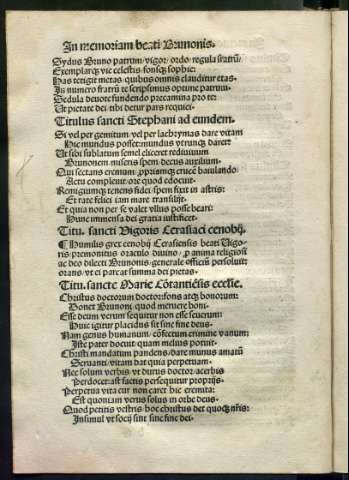 In memoriam beati Brunonis.
Sydus Bruno patrum: vigor: ordo: regula fratrū:
Exemplarqꝫ vie celestis: fonsqꝫ sophie:
Has tetigit metas: quibus omnis clauditur etas.
In numero fratrū te scripsimus optime patrum.
Sedula devote fundendo precamina pro te:
Ut pietate dei tibi detur pars requiei.
Titulus sancti Stephani ad eundem.
Si vel per gemitum: vel per lachrymas dare vitam
Hic mundus posset: mundus utrunqꝫ daret:
Ut sibi sublatum semel eliceret redivivum
Brunonem miseris spem: decus: auxilium.
Qui sectans eremum: proximūqꝫ crucē baiulando:
Actu complevit: ore quod edocuit.
Remigiumqꝫ tenens fidei: spem fixit in astris:
Et rate felici iam mare transilijt.
Et quia non per se valet ullus posse beari:
Hunc immensa dei gratia iustificet.
Titu. sancti Vigoris Cerasiaci cenobij.
¶ Humilis grex cenobij Cerasiensis beati Vigo-
ris premonitus oraculo divino: ꝓ anima religiosi
ac deo dilecti Brunonis: generale officiū persoluit:
orans: ut ei parcat summa dei pietas.
Titu. sancte Marie Cōstantiēsis ecclīe.
Christus doctorum doctor: fons atqꝫ bonorum:
Donet Brunoni: quod meruere boni.
Esse deum verum sequitur non esse severum:
Huic igitur placidus sit sine fine deus.
Nam genus humanum: cōfectum crimine vanum:
Iste pater docuit: quam melius potuit.
Christi mandatum pandens: dare munus amatū
Servanti: vitam dat quia perpetuam.
Nec solum verbis: ut durus doctor: acerbis
Perdocet: ast factis persequitur proprijs.
Perpetua vita cur non caret hic eremita:
Est quoniam verus solus in orbe deus.
Quod petitis vestris: hoc christus det quoqꝫ nr̄is:
Insimul ut socij sint sine fine dei.